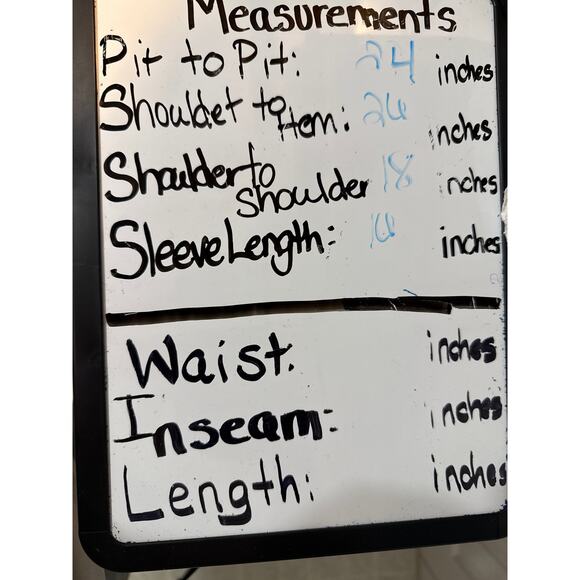 Measurements
Pit to Pit: 24 inches
Shoulder to Hem: 26 inches
Shoulder to
Shoulder 18 inches
Sleeve Length: inches
Waist: inches
Inseam: inches
Length: inches